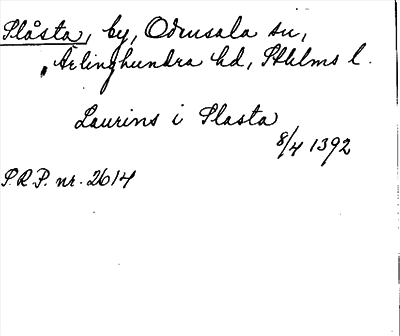 Plåsta, by, Odensala sn,
Ärlinghundra hd, Sthlms l.
Laurins i Plasta
8/4 1392
S.R.P. nr. 2614